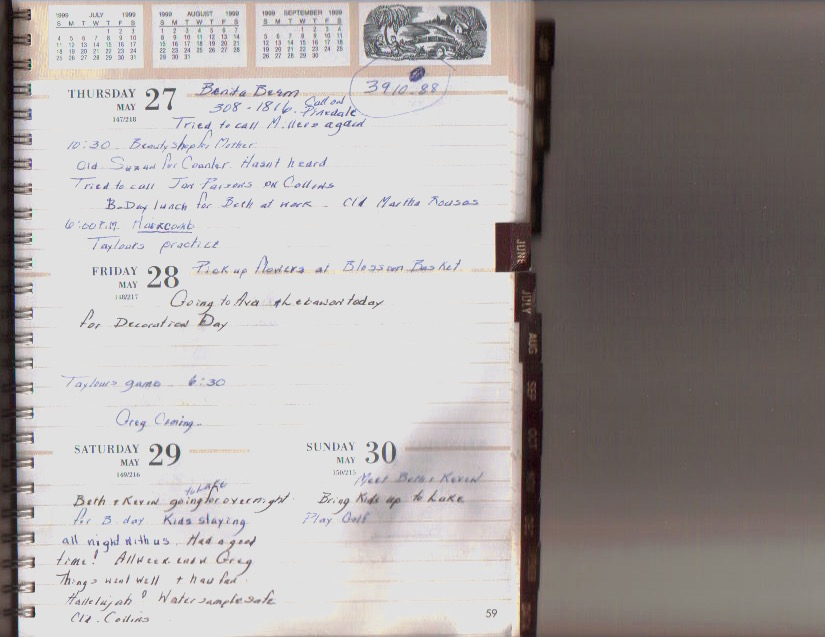 1999 JULY 1999
S M T W T F S
1 2 3
4 5 6 7 8 9 10
11 12 13 14 15 16 17
18 19 20 21 22 23 24
25 26 27 28 29 30 31
1999 AUGUST 1999
S M T W T F S
1 2 3 4 5 6 7
8 9 10 11 12 13 14
15 16 17 18 19 20 21
22 23 24 25 26 27 28
29 30 31
1999 SEPTEMBER 1999
S M T W T F S
1 2 3 4
5 6 7 8 9 10 11
12 13 14 15 16 17 18
19 20 21 22 23 24 25
26 27 28 29 30
3910.88
THURSDAY 27
MAY
147/218
Benita
308-1816 Call on
Pinedale
Tried to call Millers again
10:30 Beautyshop for Mother
Cld Suzan for Counter. Hasnt heard
Tried to call Jan Parsons on Collins
B-Day lunch for Beth at work - Cld Martha
6:00 P.M.
Taylours practice
FRIDAY 28
MAY
148/217
Pick up flowers at Blossom Basket.
Going to Ava + Lebanon today
for Decoration Day
Taylours game - 6:30
Greg Coming-
SATURDAY 29
MAY
149/216
to Lake
Beth + Kevin going for overnight
for B day Kids staying
all night with us. Had a good
time! All week end Greg
Things went well + had fun.
Hallelujah! Water sample safe
Cld. Collins
SUNDAY 30
MAY
150/215
Meet Beth + Kevin
Bring Kids up to Lake
Play Golf
59
JUNE
JULY
AUG
SEP
OCT